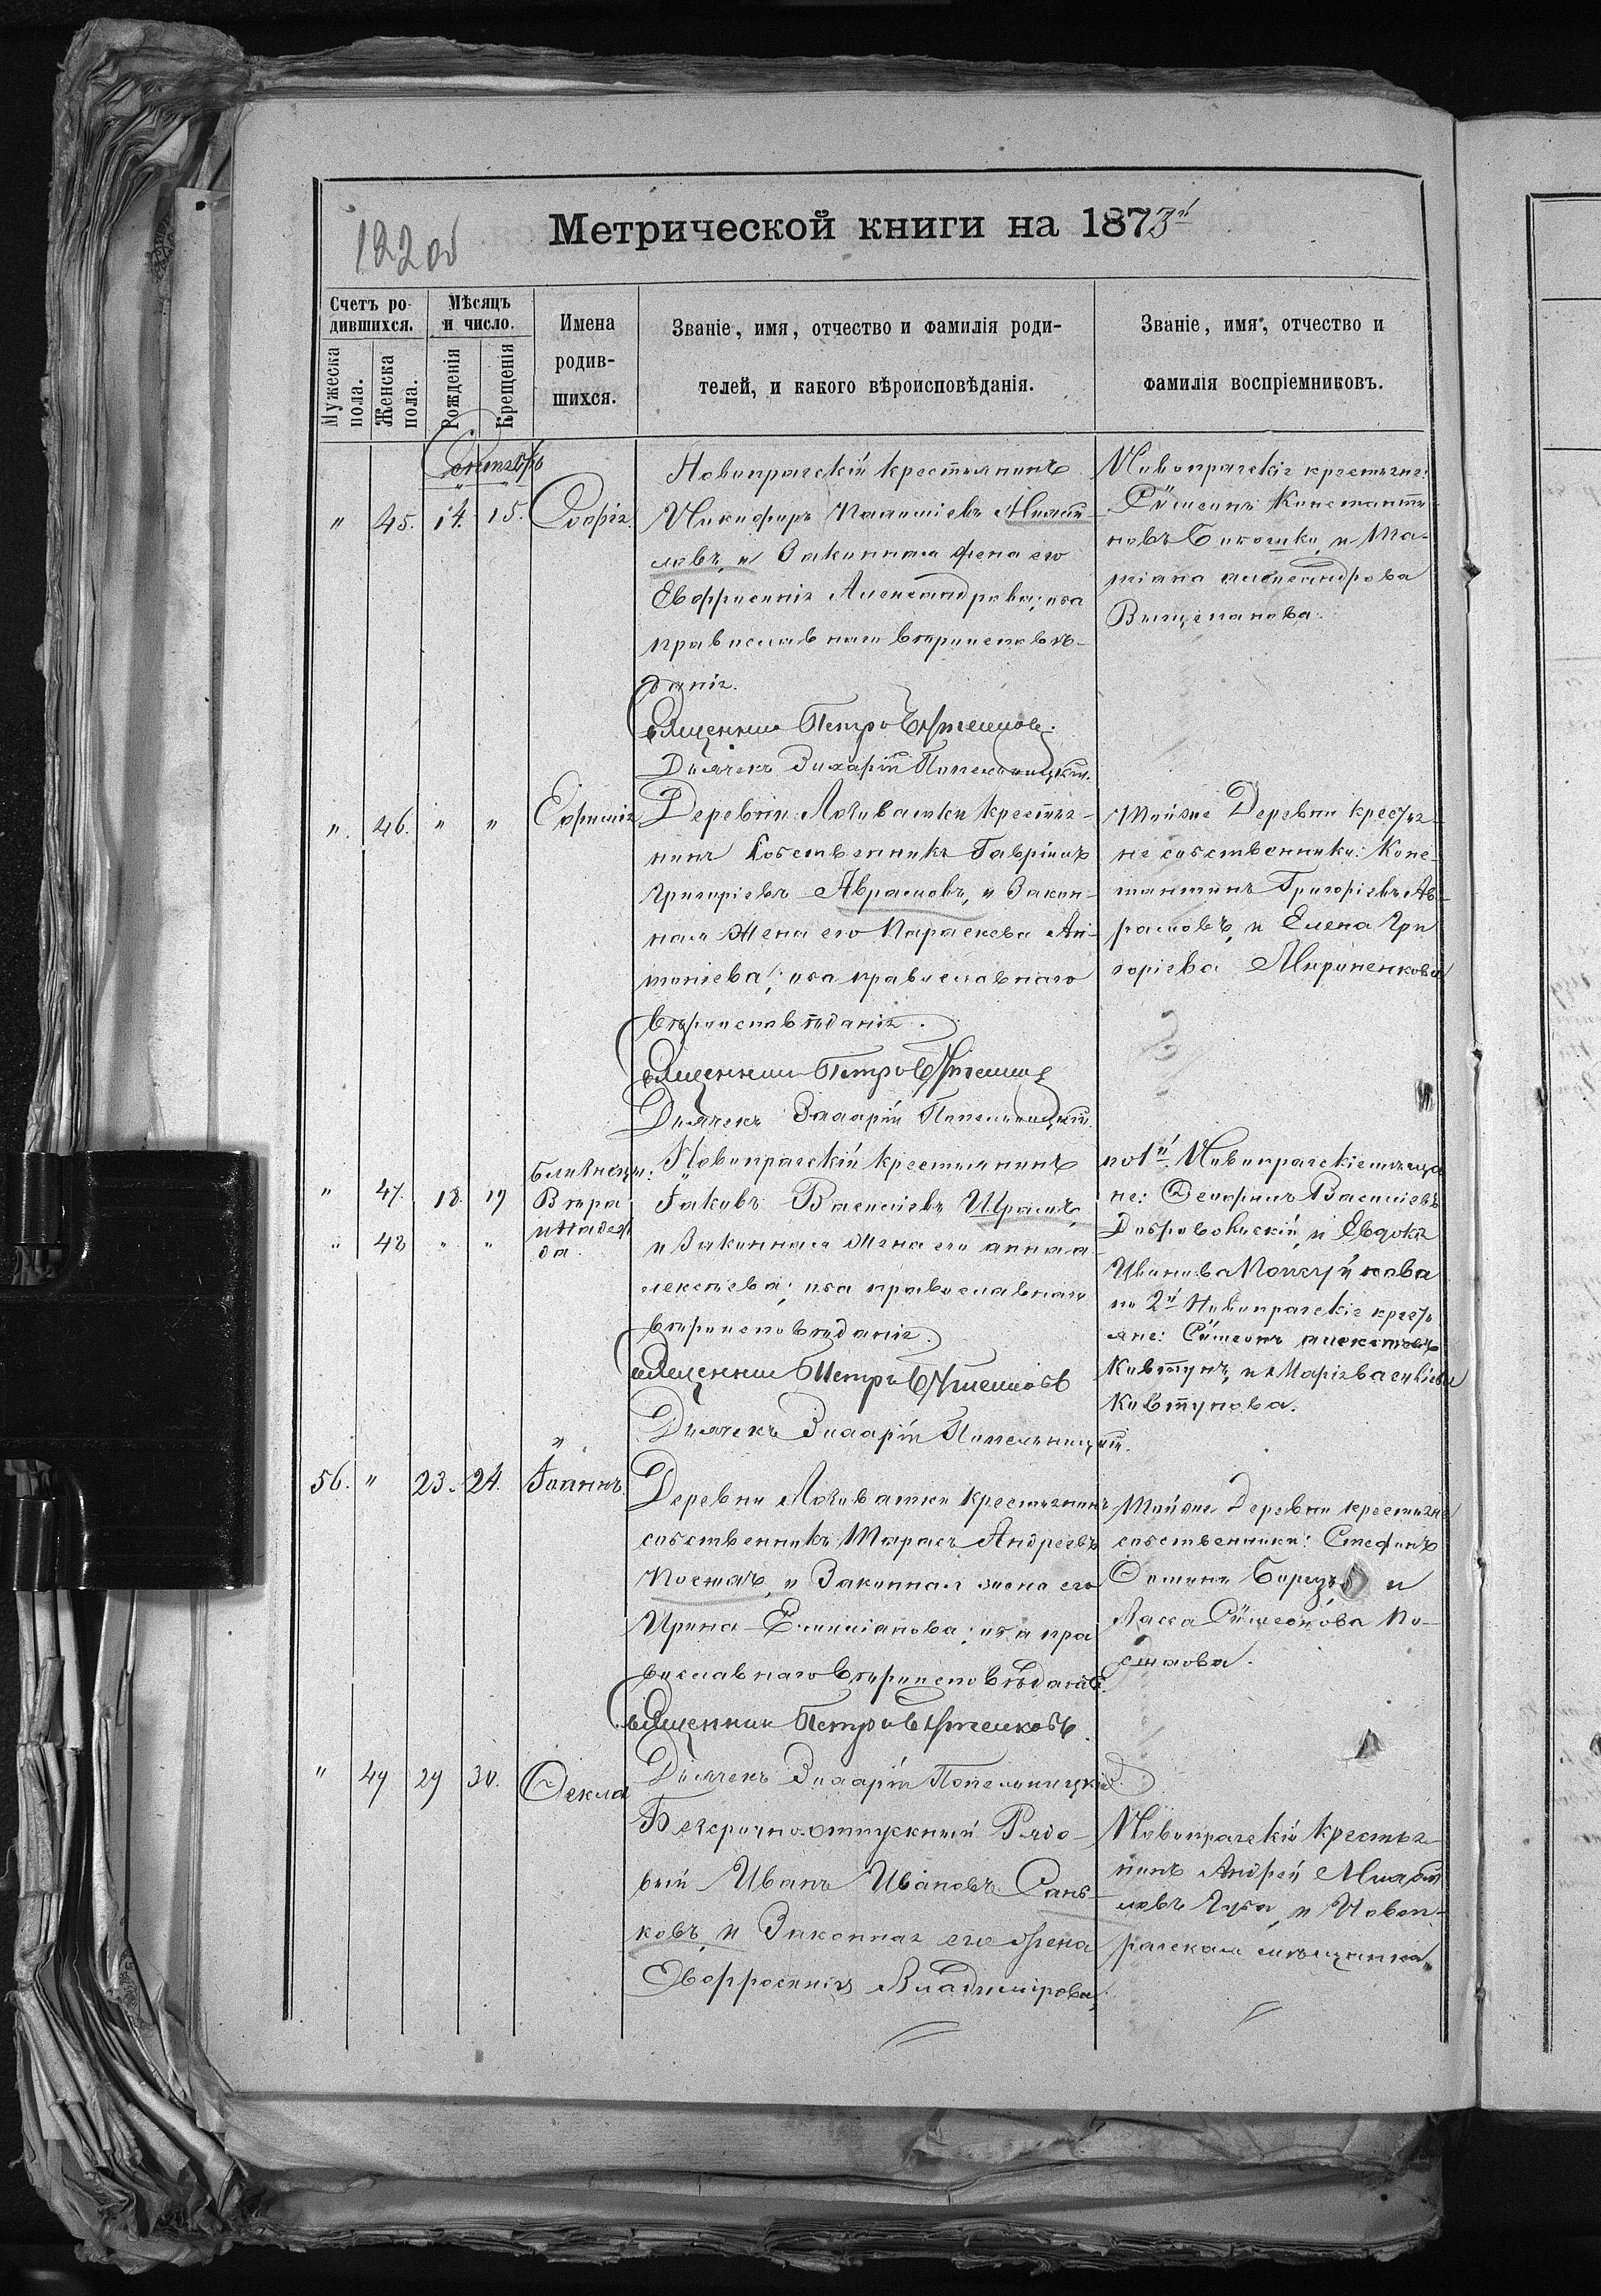 122 об
Метрической книги на 1873й
Счетъ ро-
дившихся.
Мужеска пола.
Женска пола.
Мѣсяцъ
и число.
Рожденія
Крещенія
Имена
родив-
шихся.
Званіе, имя, отчество и фамилія роди-
телей, и какого вѣроисповѣданія.
Званіе, имя, отчество и
фамилія воспріемниковъ.
Сентябрь
" 45. 14. 15. Софія.
Новопражскій крестьянинъ
Никифоръ
ловъ, и Законная жена его
Евфросинія Александрова; оба
православнаго вѣроисповѣ-
данія.
Священникъ Петръ
Дьячекъ Захарій Попельницкій.
Новопражскіе крестьяне:
Сѵмеонъ Константи-
новъ и Та-
тіана Александрова
" 46. " " Евфимія
Деревни Лозоватки крестья-
нинъ Собственникъ Гавріилъ
Григоріевъ Аврамовъ, и Закон-
ная Жена его Параскева Ан-
тоніева; оба православнаго
вѣроисповѣданія.
Священникъ Петръ
Дьячекъ Захарій Попельницкій.
Тойже Деревни крестья-
не собственники: Конс-
тантинъ Григоріевъ Ав-
рамовъ, и Елена Гри
горіева Мироненкова
Близнецы:
" 47. 18. 19 Вѣра
" 48 " " и Надеж
да.
Новопражскій крестьянинъ
Іаковъ Василіевъ
и Законная Жена его Анна А
лексѣева; оба православнаго
вѣроисповѣданія.
Священникъ Петръ
Дьячекъ Захарій Попельницкій.
по 1й Новопражскіе мѣща
не: Василіевъ
Добровольскій, и Евдокія
Иванова
по 2й Новопражскіе кресть
яне: Сѵмеонъ Алексѣевъ
Ковтунъ, и Марія Василіева
Ковтунова.
56. " 23. 24. Іоаннъ.
Деревни Лозоватки крестьянинъ
собственникъ Тарасъ Андреевъ
Посталъ, и Законная жена его
Ирина Емиліанова; оба пра
вославнаго вѣроисповѣданія.
Священникъ Петръ
Дьячекъ Захарій Попельницкій.
Тойже Деревни крестьяне
собственники: Стефанъ
Ѳоминъ и
Васса Сѵмеонова По-
сталова.
" 49 29 30. Ѳекла
Безсрочно-отпускный Рядо-
вый Иванъ Ивановъ Сань-
ковъ, и Законная его жена
Евфросинія Владимірова,
Новопражскій Крестья-
нинъ Андрей Михай
ловъ и Новоп-
ражская мѣщанка